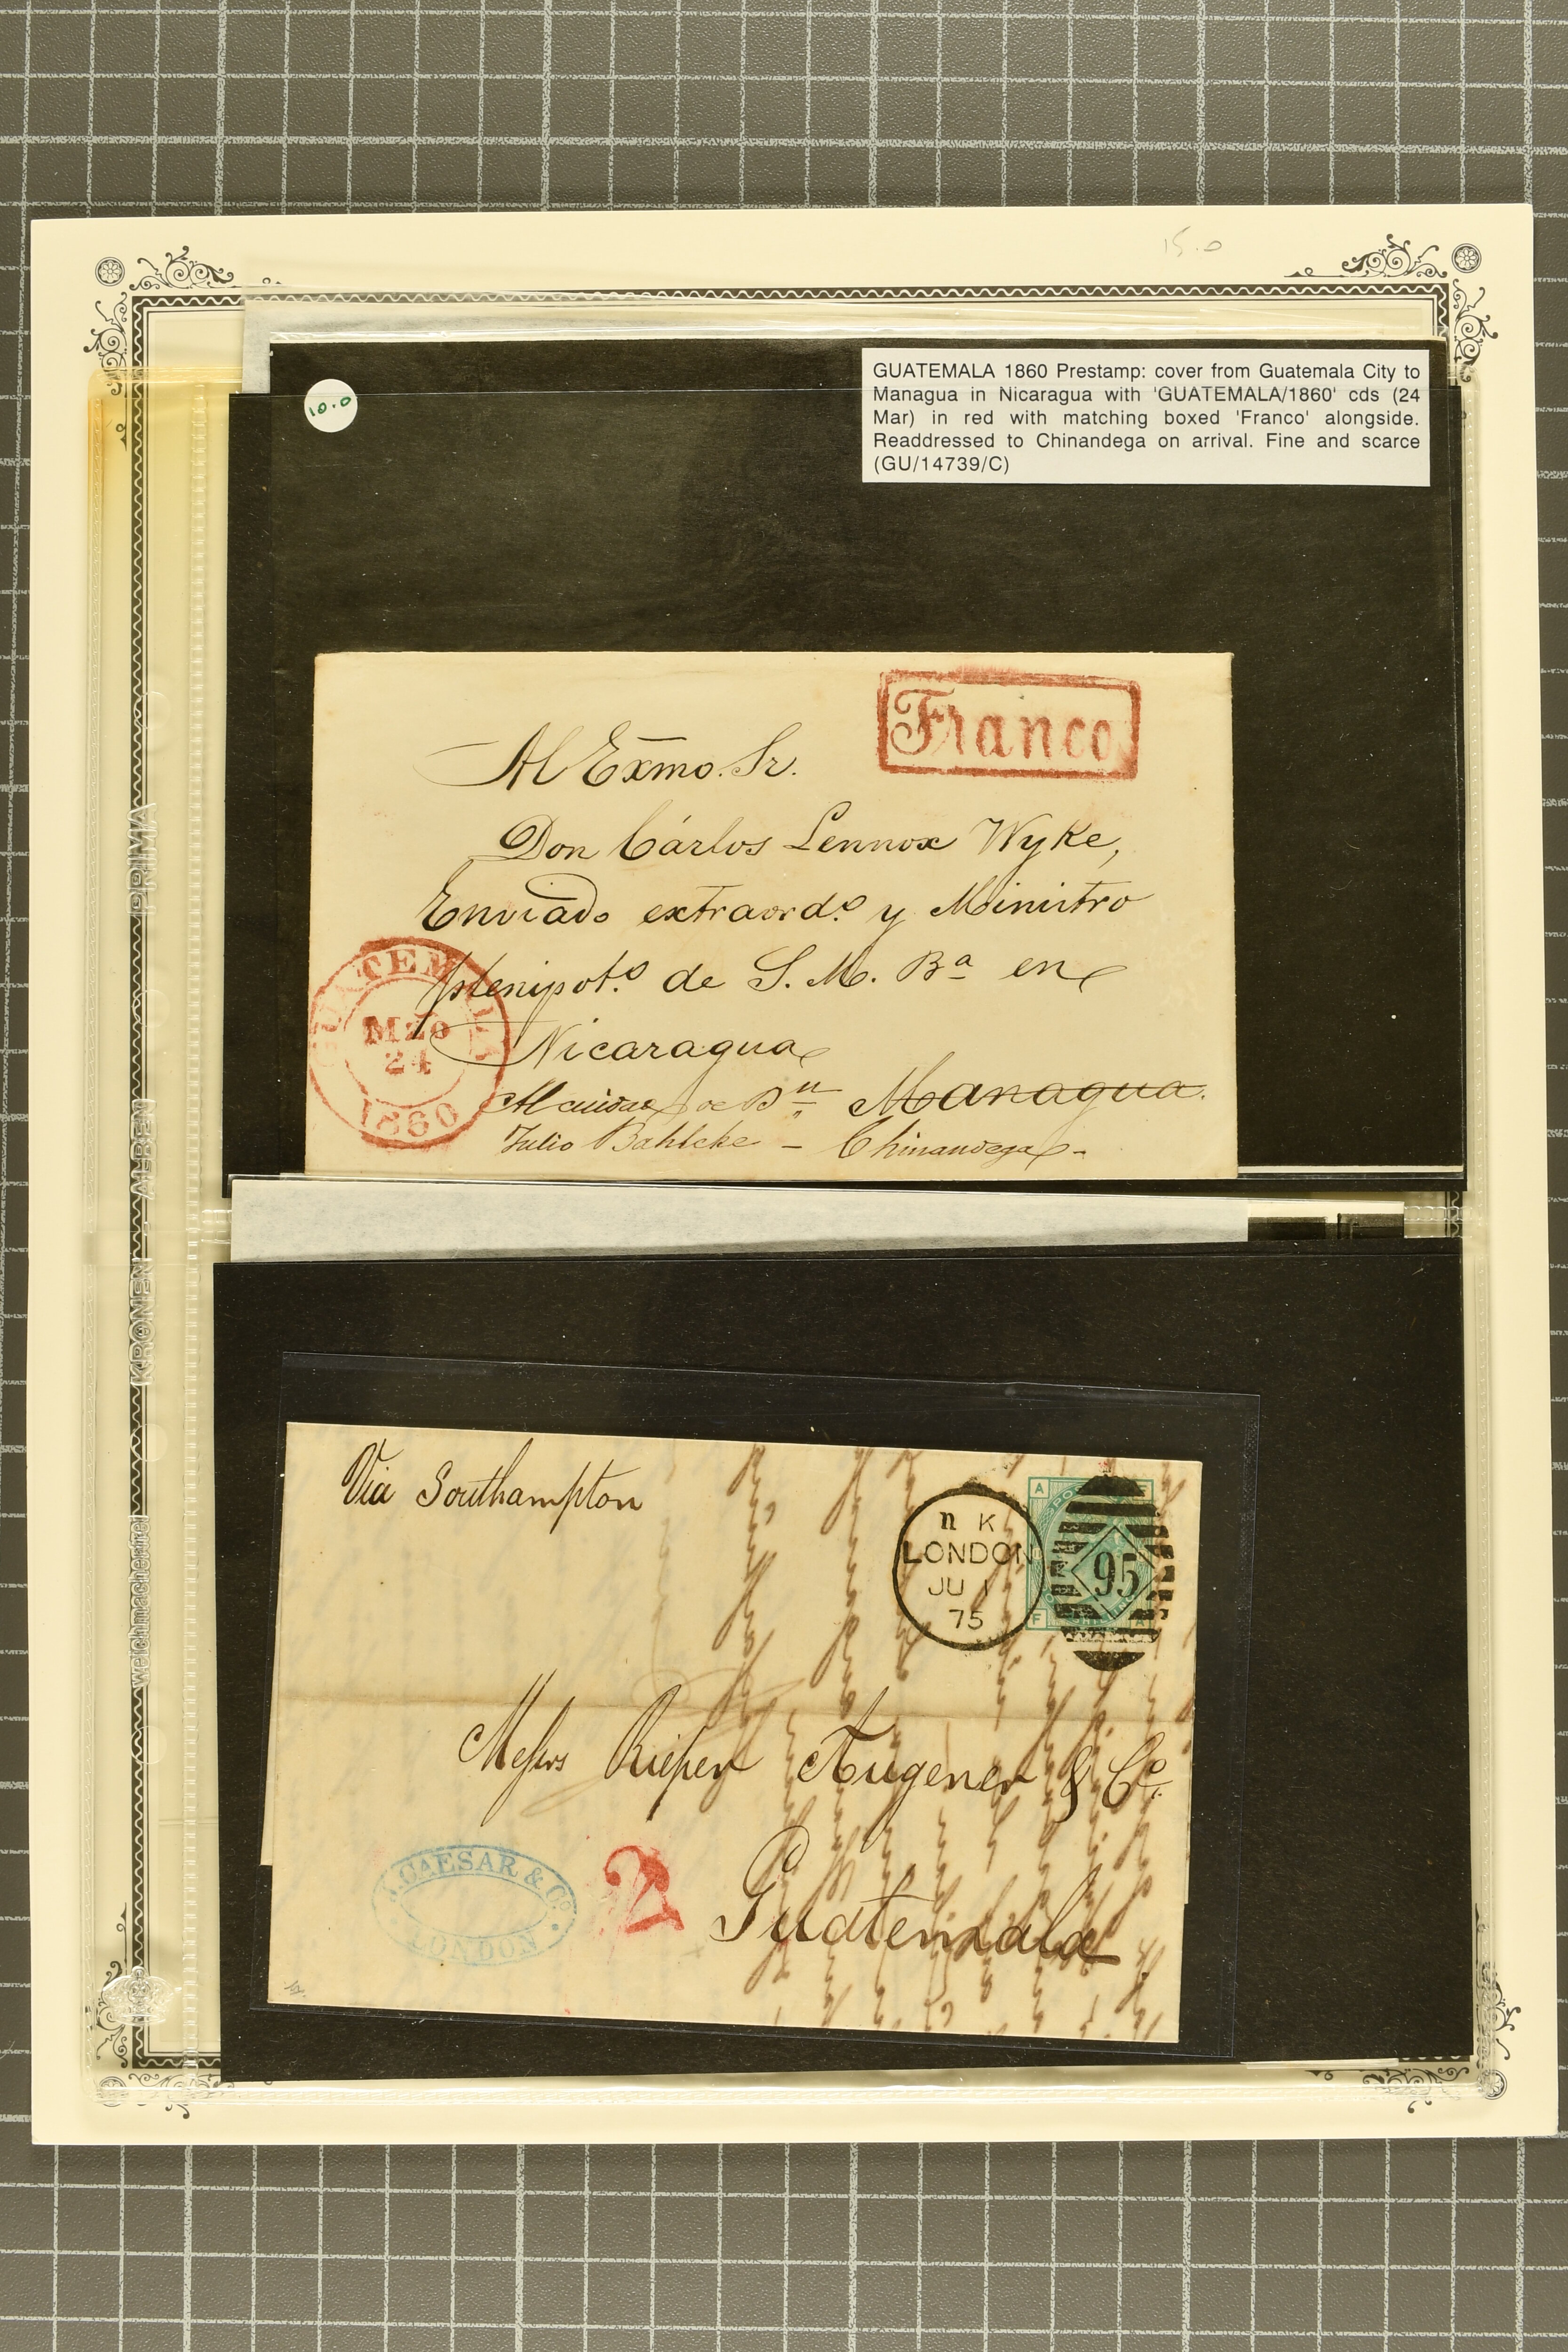 15.0
10.0
GUATEMALA 1860 Prestamp: cover from Guatemala City to
Managua in Nicaragua with 'GUATEMALA/1860' cds (24
Mar) in red with matching boxed 'Franco' alongside.
Readdressed to Chinandega on arrival. Fine and scarce
(GU/14739/C)
Franco
Al Exmo. Sr.
Don Cárlos Lennox Wyke,
Enviado extraord.o y Minitro
plenipot.o de S. M. Ba en
Nicaragua
Managua.
Al cuidado de Dn
Julio Bahlcke - Chinandega -
GUATEMALA
Mzo
24
1860
KRONEN - ALBEN PRIMA
weichmacherfrei
Via Southampton
n K
LONDON
JU 1
75
95
A F
F A
Messrs Rieper Augener & Co.
Guatemala
2
J. CAESAR & Co.
LONDON